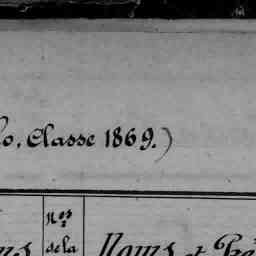 lo, Classe 1869.)
Nos
de la
Noms et Pré